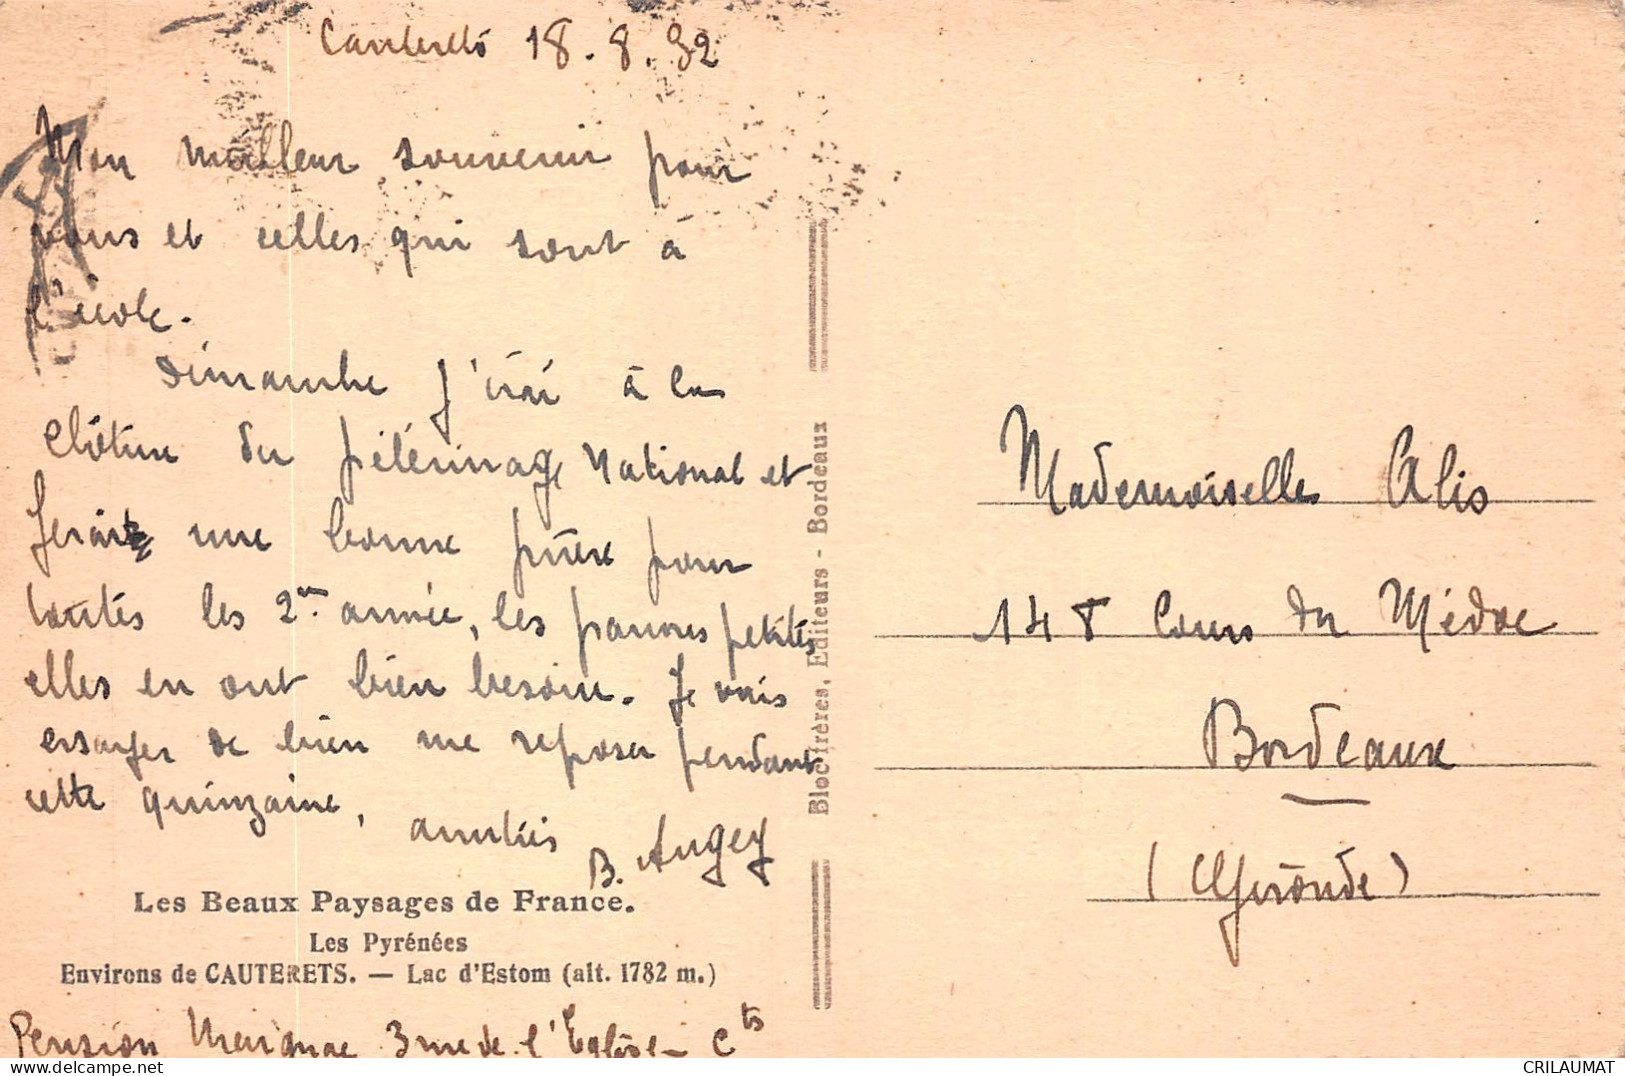 Cauterets 18.8.32
Mon meilleur souvenir pour
vous et celles qui sont à
l'école.
Dimanche j'irai à la
clôture du pélérinage National et
ferai une bonne prière pour
toutes les 2me année, les pauvres petites
elles en ont bien besoin. Je vais
essayer de bien me reposer pendant
cette quinzaine, amitiés
B. Augey
Les Beaux Paysages de France.
Les Pyrénées
Environs de CAUTERETS. — Lac d'Estom (alt. 1782 m.)
Pension Meignac 3 rue de l'Eglise - Cts
Bloc frères, Editeurs - Bordeaux
Mademoiselle Alis
148 Cours du Médoc
Bordeaux
(Gironde)
delcampe.net
CRILAUMAT